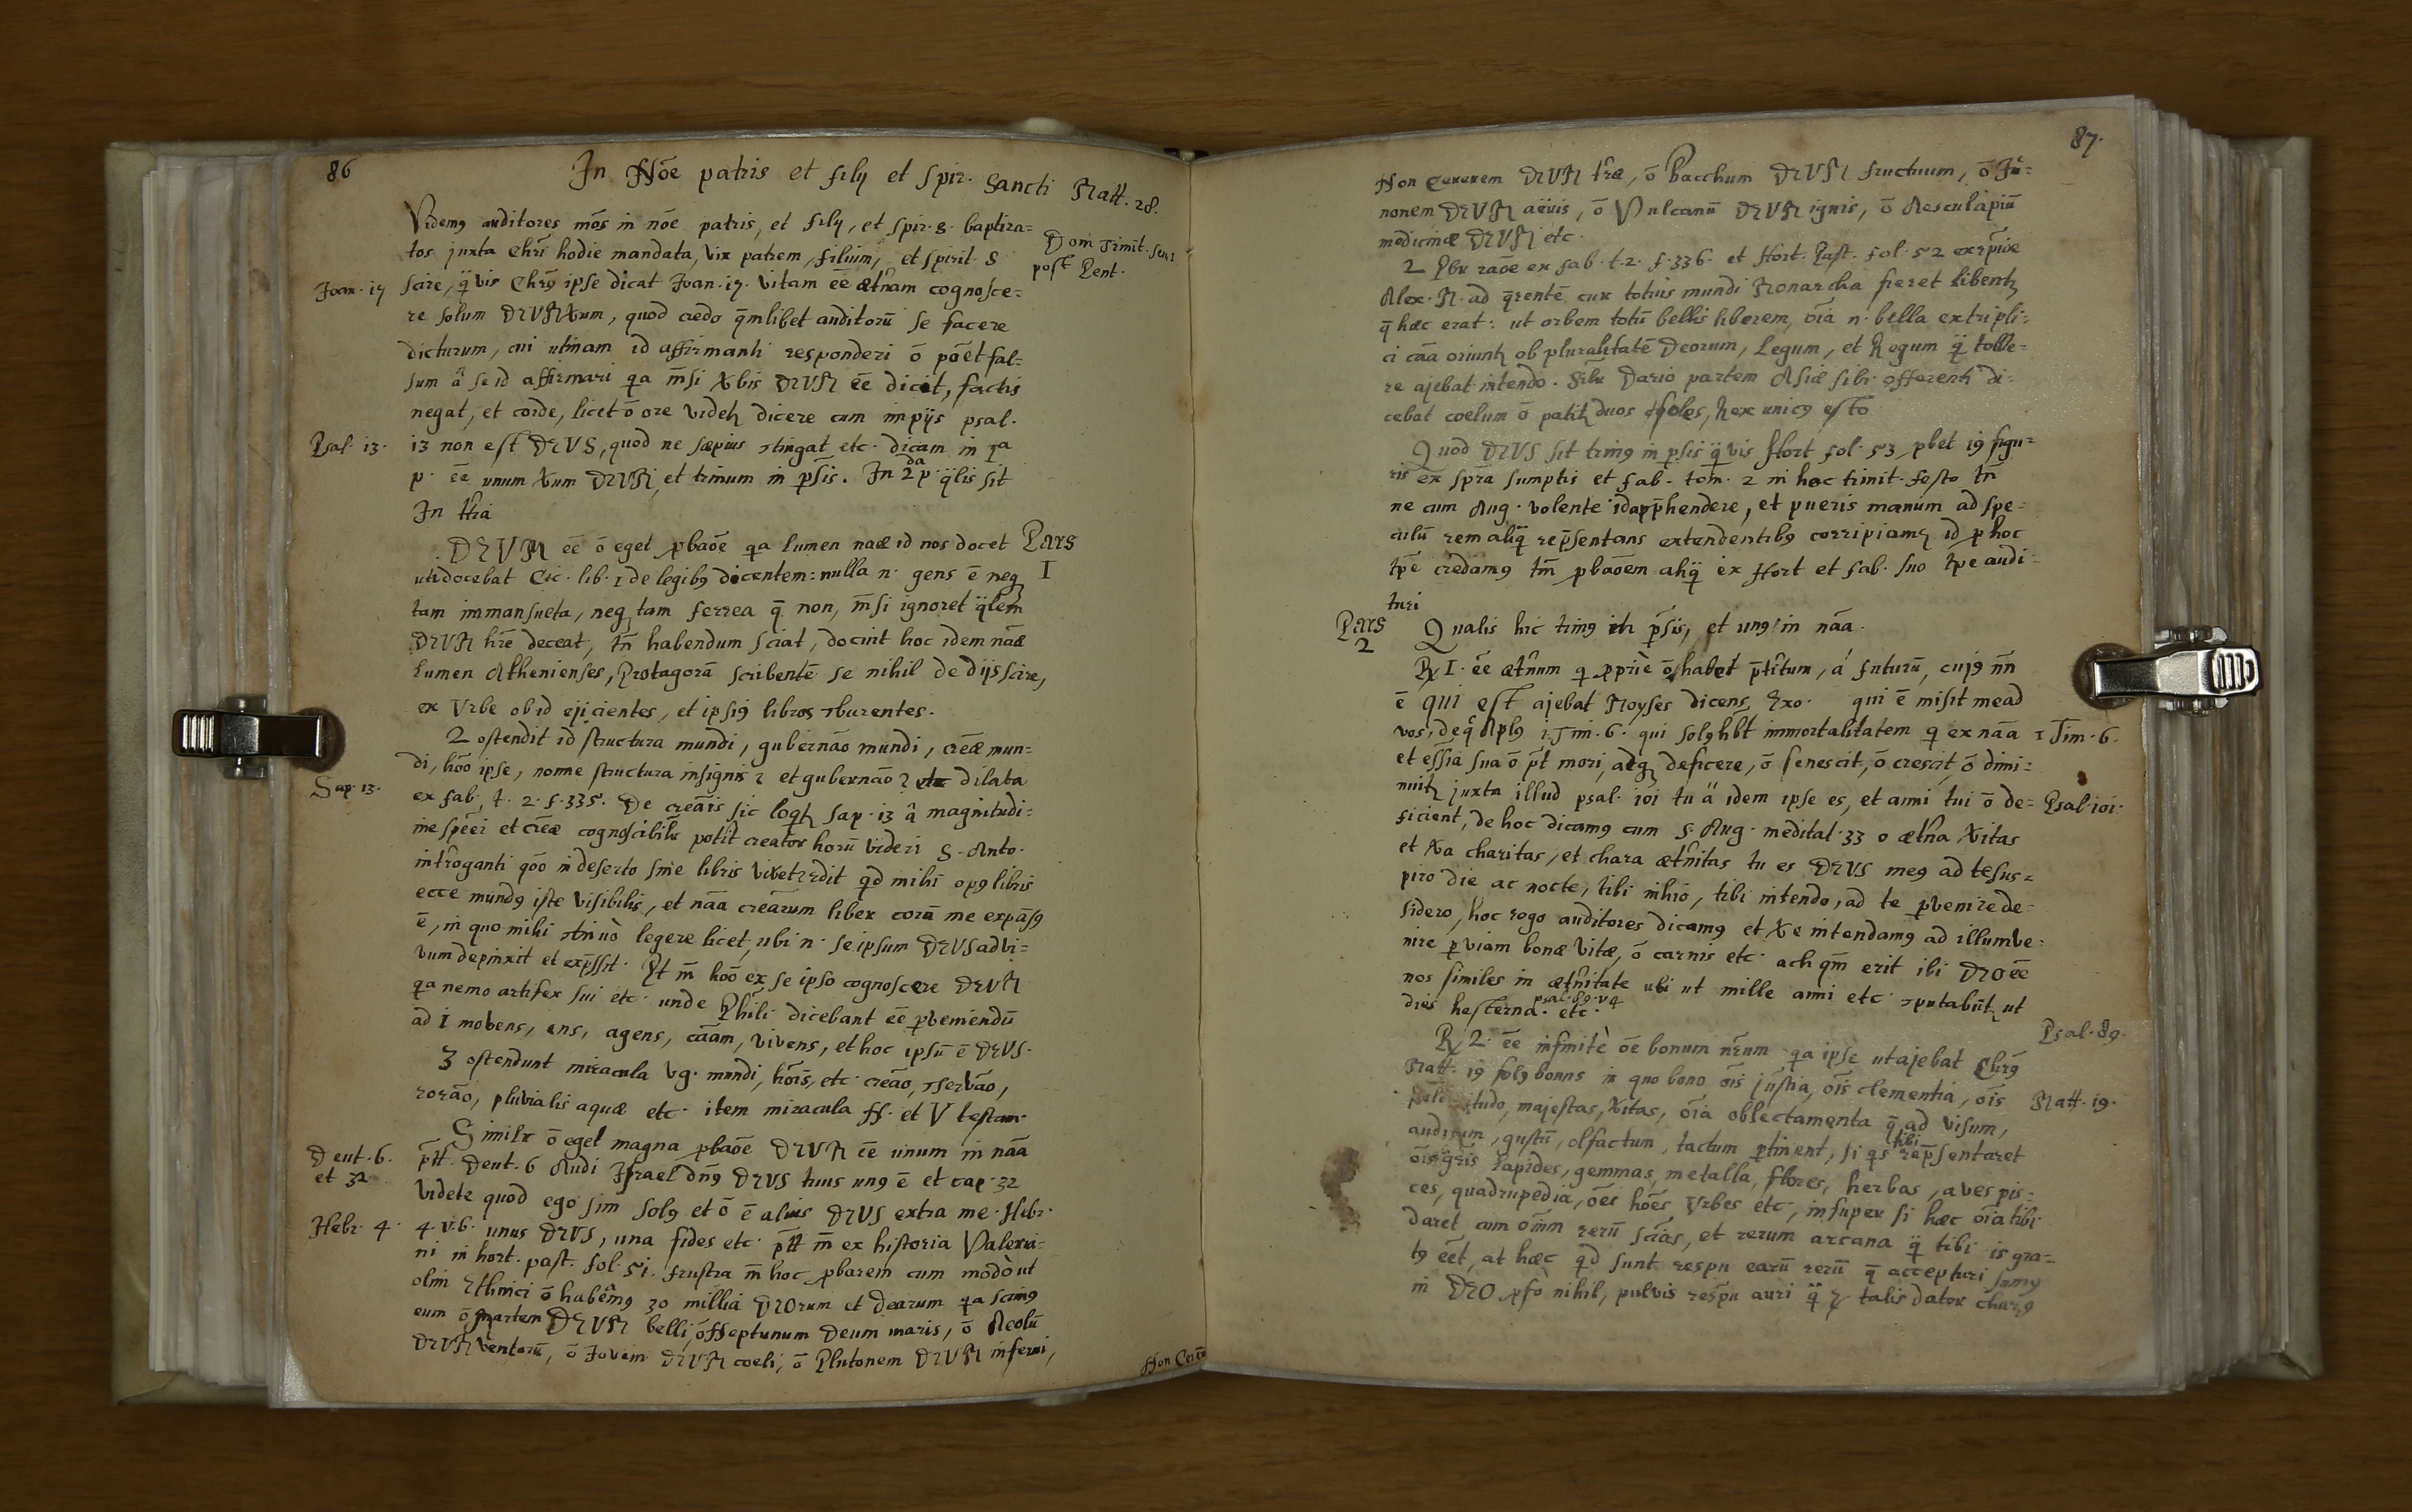 86
In Nōe patris et filij et spir. Sancti Matt. 28.
Videmꝰ auditores mōs in nōe patris, et filij, et spir. S. baptiza=
Dom Trinit. seu 1
tos juxta Chri hodie mandata, vix patrem, filium, et spirit. S
post Pent.
Joan. 17
scire, q̄vis Chrꝰ ipse dicat Joan. 17. vitam ēē ætnam cognosce=
re solum DEUM Xum, quod credo q̄mlibet auditorū se facere
dicturum, cui utinam id affirmanti responderi ō pōēt fal=
sum â se id affirmari qa m̄si Xbis DEUM ēē dicit, factis
negat, et corde, licet ō ore videtꝫ dicere cum impijs psal.
Psal. 13.
13 non est DEUS, quod ne sæpius ꝯtingat etc. dicam in 1a
p. ēē unum Xum DEUM, et trinum in psis. In 2da p. qlis sit
In thia
DEUM ēē ō eget pbaōe qa lumen naæ id nos docet
Pars
I
uti docebat Cic. lib. 1 de legibꝰ dicentem: nulla n. gens ē neqꝫ
tam immansueta, neqꝫ tam ferrea q̄ non, m̄si ignoret q̄lem
DEUM hre deceat, tn̄ habendum sciat, docuit hoc idem nāæ
lumen Athenienses, Protagorā scribentē se nihil de Dijs scire,
ex Urbe ob id ejicientes, et ipsiꝰ libros ꝯburentes.
2 ostendit id structura mundi, gubernāo mundi, creæ mun=
di, hōo ipse, nonne structura insignis? et gubernāo? etc dilata
Sap. 13.
ex fab. t. 2. f. 335. De creāis sic loqtꝫ Sap. 13 â magnitudi=
ine spēei et creæ cognoscibilr potit creator horū videri S. Anto.
introganti qōo in deserto sine libris viveret rdit qd mihi opꝰ libris
ecce mundꝰ iste visibilis, et nāa creārum liber corā me expāsꝰ
ē, in quo mihi ꝯtinuò legere licet, ubi n. se ipsum DEUS ad vi=
vum depinxit et exp̄ssit. Pt m̄ hōo ex se ipso cognoscere DEUM
qa nemo artifex sui etc. unde Phili dicebant ēē pveniendū
ad I movens, ens, agens, cāam, vivens, et hoc ipsū ē DEUS.
3 ostendunt miracula vg. mundi, hōis, etc. creāo, ꝯservāo,
rorāo, pluvialis aquæ etc. item miracula N. et V testam.
Similr ō eget magna pbaōe DEUM ēē unum in nāa
Deut. 6.
et 32
ptt. Deut. 6 Audi Israel dnꝰ DEUS tuus unꝰ ē et cap. 32
videte quod ego sim solꝰ et ō ē alius DEUS extra me. Hebr.
Hebr. 4.
4 v. 6. unus DEUS, una fides etc. ptt m̄ ex historia Valeria=
ni in hort. past. fol. 51. frustra m̄ hoc pbarem cum modò ut
olim Ethnici ō habemꝰ 30 millia DEOrum et Dearum qa scimꝰ
eum ō Martem DEUM belli, ō Neptunum Deum maris, ō Aeolū
DEUM ventorū, ō Jovem DEUM coeli, ō Plutonem DEUM inferni,
Non Cerem
87.
Non Cererem DEUM træ, ō Bacchum DEUM fructuum, ō Ju=
nonem DEUM aëris, ō Vulcanū DEUM ignis, ō Aesculapiū
medicinæ DEUM etc.
2 Pbr raōe ex fab. t. 2. f. 336. et Hort. Past. fol. 52
Alex. M. ad q̄rentē cur totius mundi Monarcha fieret libentꝫ
q̄ hæc erat: ut orbem totū bellis liberem, oīa n. bella ex tripli=
ci cāa oriuntꝫ ob pluralitatē Deorum, Legum, et Regum q̄ tolle=
re ajebat intendo. Silr Dario partem Asiæ sibi offerenti di=
cebat coelum ō patitꝫ duos soles, Rex unicꝰ esto
Quod DEUS sit trinꝰ in psis q̄vis Hort fol. 53 pbet 19 figu=
ris ex spra sumptis et fab. tom. 2 in hoc trinit. festo tn̄
ne cum Aug. volente id app̄hendere, et pueris manum ad spe=
culū rem aliq̄ rep̄sentans extendentibꝰ corripiamꝫ id p hoc
tp̄e credamꝰ tm̄ pbaōem aliq̄ ex Hort et fab. suo tpe audi=
turi
Pars
2
Qualis hic trinꝰ in psis, et unꝰ in nāa.
R I. ēē ætnum q ppriè ō habet p̄titum, á futurū, cujꝰ nn
ē QUI est ajebat Moyses dicens Exo. qui ē misit me ad
vos, de q̄ Aplꝰ 1. Tim. 6. qui solꝰ hbt immortalitatem q ex nāa
1 Tim. 6.
et essia sua ō pt mori, atqꝫ deficere, ō senescit, ō crescit, ō dimi=
nuitꝫ juxta illud psal. 101 tu ä idem ipse es, et anni tui ō de=
Psal. 101.
ficient, de hoc dicamꝰ cum S. Aug. meditat. 33 o ætna Xitas
et Xa charitas, et chara ætnitas tu es DEUS meꝰ ad te sus=
piro die ac nocte, tibi inhio, tibi intendo, ad te pvenire de=
sidero, hoc rogo auditores dicamꝰ et Xe intendamꝰ ad illum ve=
nire p viam bonæ vitæ, ō carnis etc. ach qm̄ erit ibi DEO ēē
nos similes in ætnitate ubi ut mille anni etc. ꝯputabūtꝫ ut
dies hesterna. psal. 89. v 4 etc.
Psal. 89.
R 2. ēē infinitè ōe bonum nrum qa ipse ut ajebat Chrꝰ
Matt. 19 solꝰ bonus in quo bono ōis justia, ōis clementia, ōis
Matt. 19.
pulcritudo, majestas, Xitas, ōia oblectamenta q̄ ad visum,
auditum, gustū, olfactum, tactum ptinent, si qs tibi rep̄sentaret
ōis gris lapides, gemmas, metalla, flores, herbas, aves pis=
ces, quadrupedia, ōes hōes Urbes etc, insuper si hæc ōia tibi
daret cum ōnm rerū scias, et rerum arcana q̄ tibi is gra=
tꝰ ēēt, at hæc qd sunt respu earū rerū q̄ accepturi sumꝰ
in DEO pfò nihil, pulvis respu auri q̄ ꝫ talis dator charꝰ